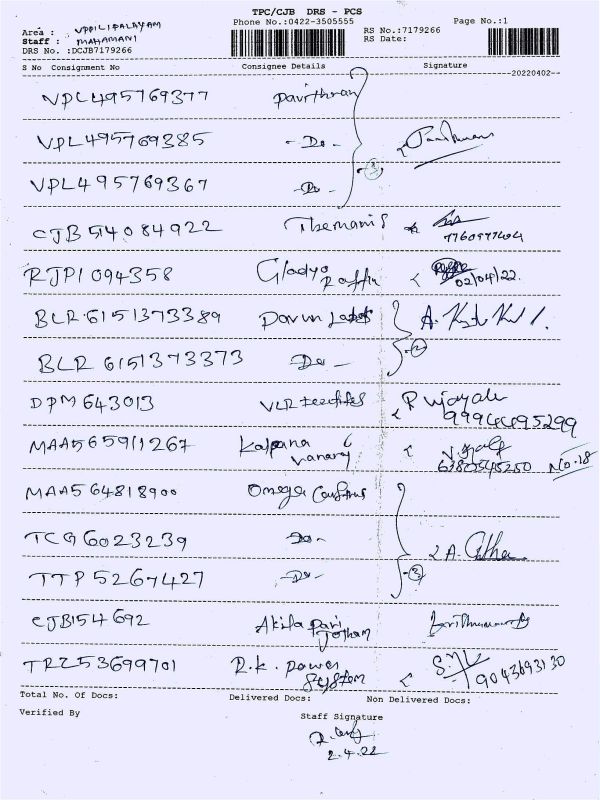 TPC/CJB DRS - PCS
Area : UPPILIPALAYAM
Phone No.:0422-3505555
Page No.:1
Staff : MAHAMANI
RS No.:7179266
DRS No. :DCJB7179266
RS Date:
S No Consignment No Consignee Details Signature
--20220402--
VPL495769377 Pavithran
VPL495769385 - Do -
VPL495769367 - Do - 3
CJB514084922 Themani S
7760977404
RJP1094358 Gladys Raffin
02/04/22.
BLR6151373389 Pavun Labs
BLR6151373373 - Do - 2
DPM643013 VLR P Vijayale
99944495299
MAA565911267 Kalpana
Vanaraj No.18
MAA564818900 Omega
TCG6023239 - Do - A.
TTP5267427 - Do - 3
CJB154692 Akila Pari
Jotham
TRZ53699701 R.K. Power
System 9043693130
Total No. Of Docs: Delivered Docs: Non Delivered Docs:
Verified By Staff Signature
2.4.22